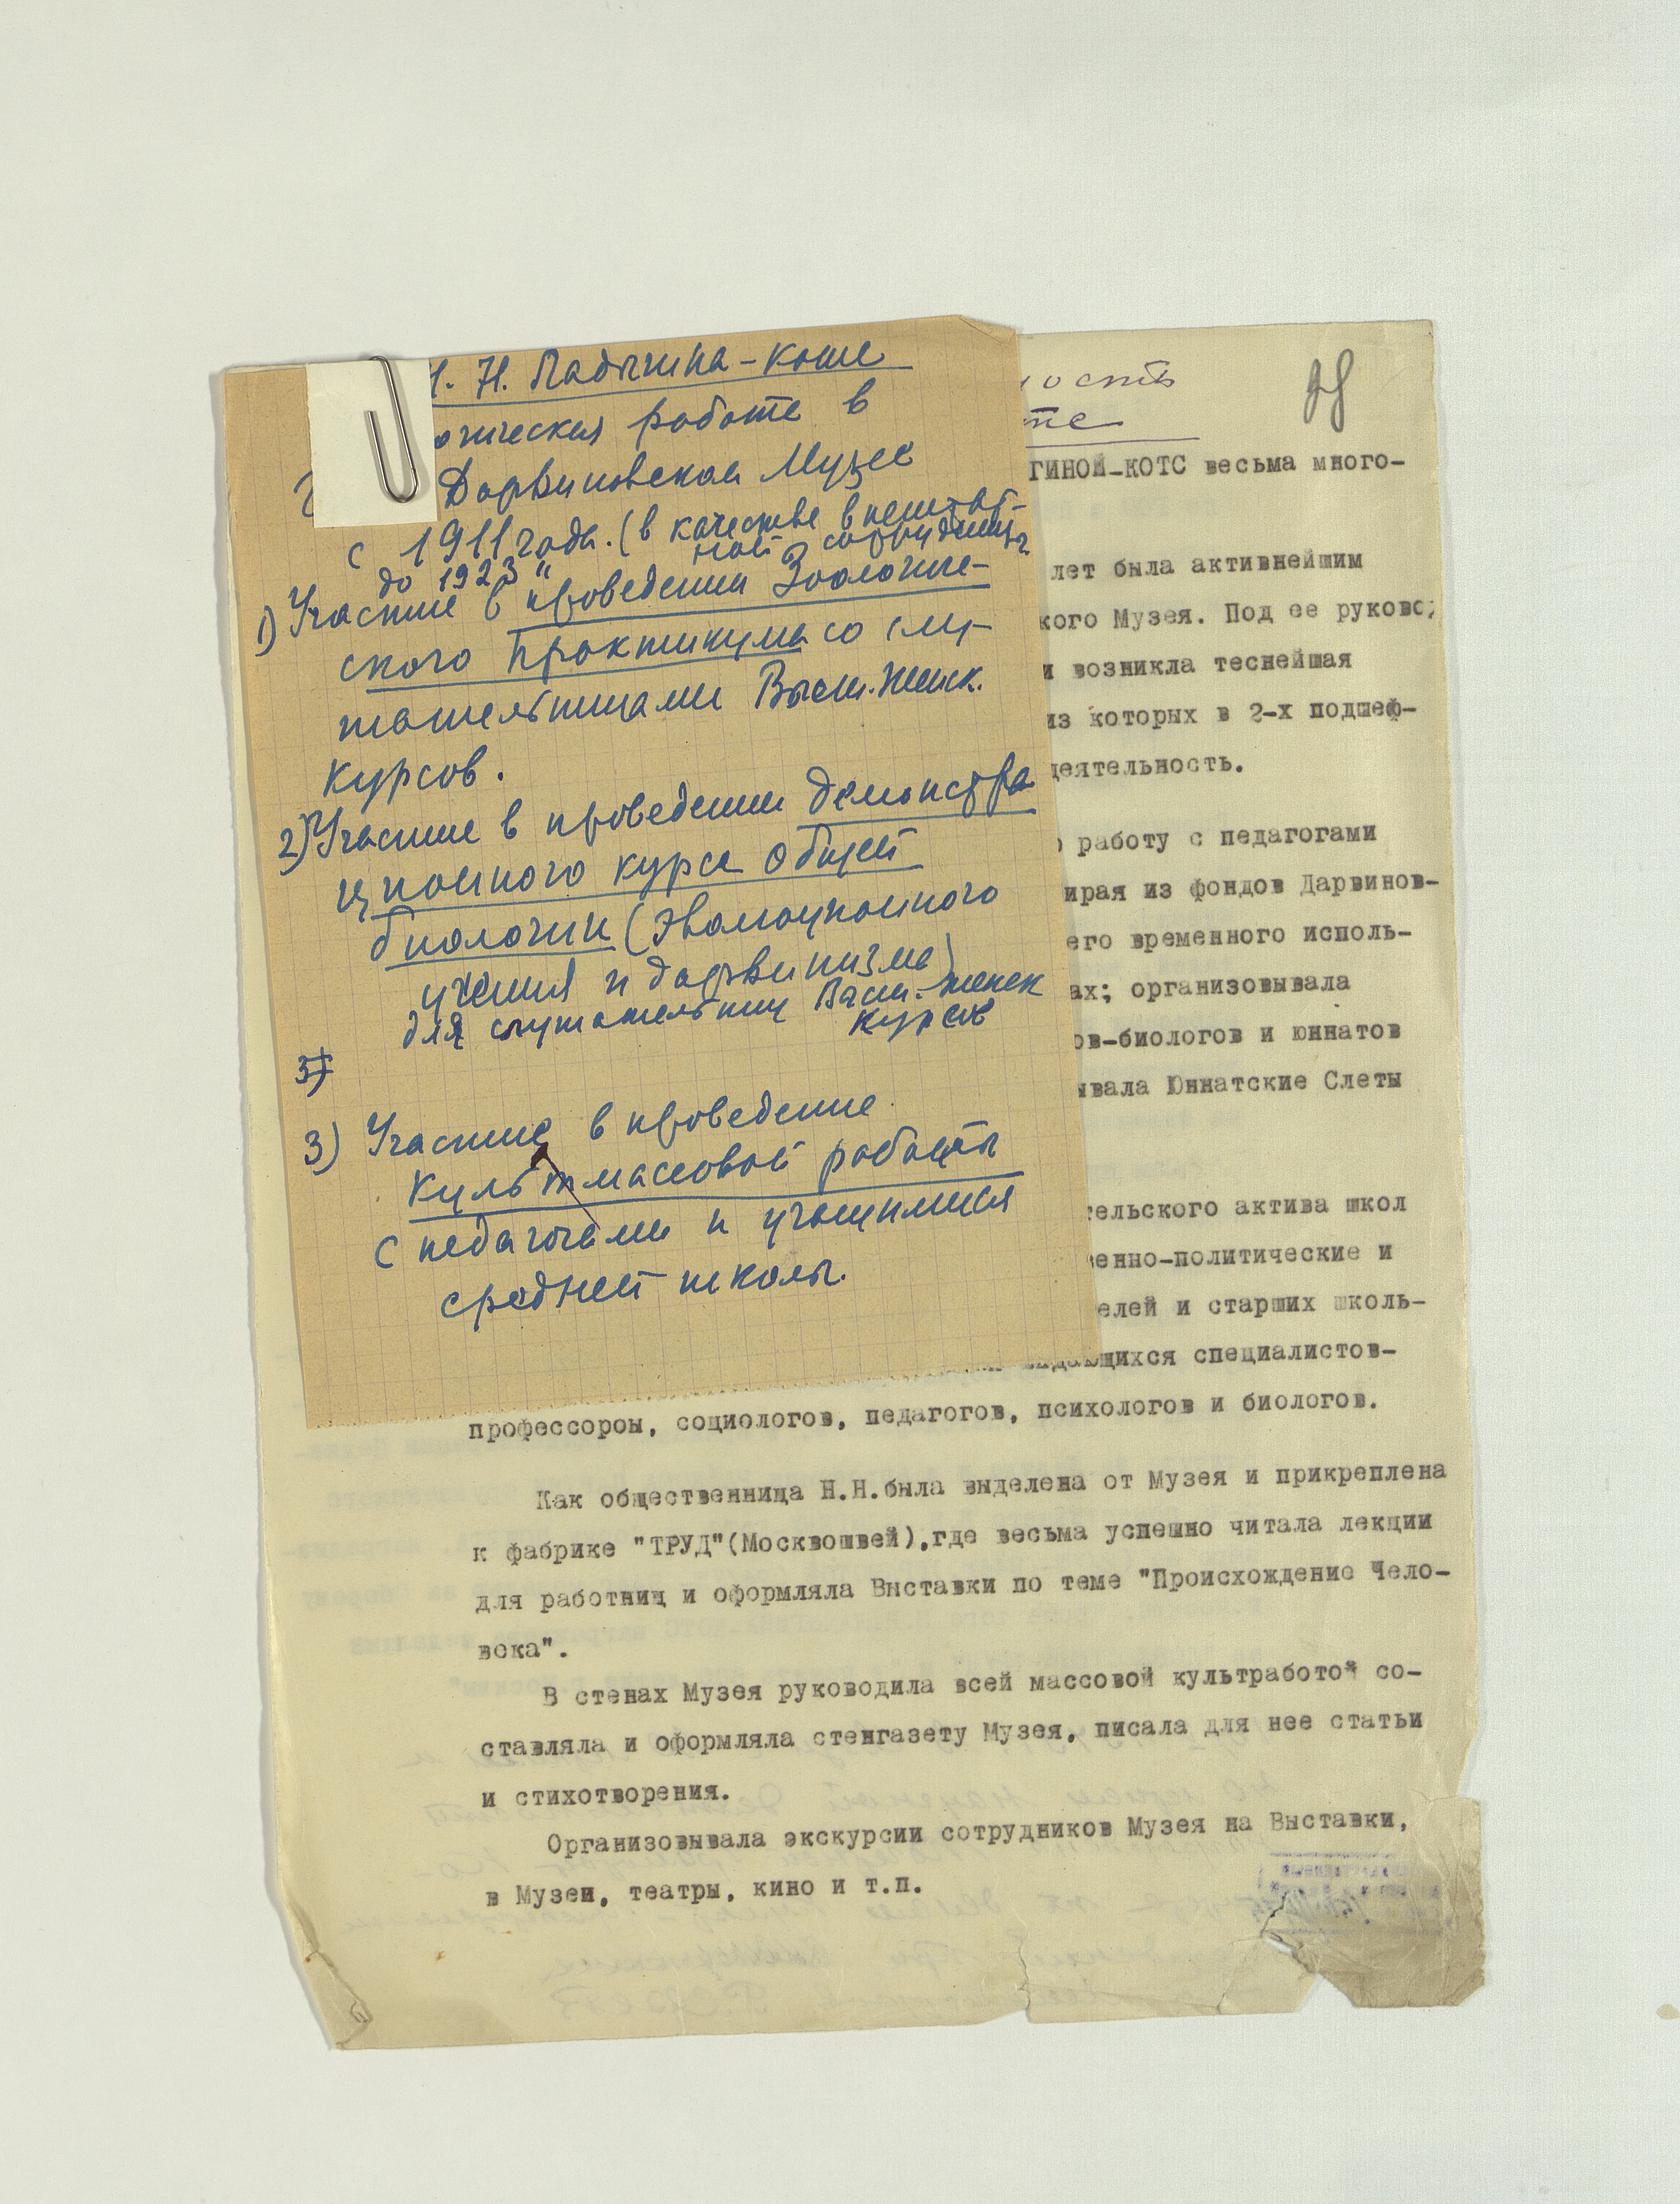 Н. Н. Ладыгина-Котс
огическая работа в
Дарвиновском Музее
с 1911 года. (в качестве внештат-
ной сотрудницы
до 1923 "
1) Участие в проведении Зоологиче-
ского практикума со слу-
шательницами Высш. Женск.
курсов.
2) Участие в проведении демонстра
ционного курса общей
биологии (эволюционного
учения и дарвинизма)
для слушательниц Высш. женск
курсов
3)
3) Участие в проведение
культмассовой работы
с педагогами и учащимися
средней школы.
ность
те
ГИНОЙ-КОТС весьма много-
лет была активнейшим
кого Музея. Под ее руково
и возникла теснейшая
из которых в 2-х подшеф-
деятельность.
работу с педагогами
ирая из фондов Дарвинов-
его временного исполь-
ах; организовывала
ов-биологов и юннатов
ывала Юннатские Слеты
тельского актива школ
енно-политические и
елей и старших школь-
выдающихся специалистов-
профессором, социологов, педагогов, психологов и биологов.
Как общественница Н.Н.была выделена от Музея и прикреплена
к фабрике "ТРУД"(Москвошвей),где весьма успешно читала лекции
для работниц и оформляла Выставки по теме "Происхождение Чело-
века".
В стенах Музея руководила всей массовой культработой со-
ставляла и оформляла стенгазету Музея, писала для нее статьи
и стихотворения.
Организовывала экскурсии сотрудников Музея на Выставки,
в Музеи, театры, кино и т.п.